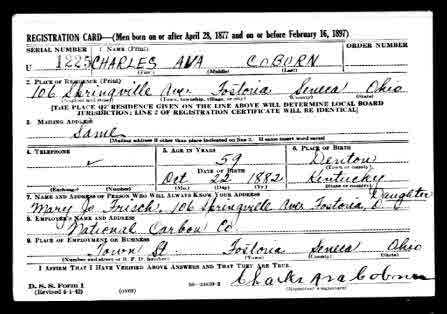 REGISTRATION CARD—(Men born on or after April 28, 1877 and on or before February 16, 1897)
SERIAL NUMBER 1. NAME (Print) ORDER NUMBER
U 1225 CHARLES AVA COBURN
(First) (Middle) (Last)
2. PLACE OF RESIDENCE (Print)
106 Springville Ave. Fostoria Seneca Ohio
(Number and street) (Town, township, village, or city) (County) (State)
[THE PLACE OF RESIDENCE GIVEN ON THE LINE ABOVE WILL DETERMINE LOCAL BOARD
JURISDICTION; LINE 2 OF REGISTRATION CERTIFICATE WILL BE IDENTICAL]
3. MAILING ADDRESS
Same
[Mailing address if other than place indicated on line 2. If same insert word same]
4. TELEPHONE 5. AGE IN YEARS 6. PLACE OF BIRTH
59 Denton
DATE OF BIRTH (Town or county)
Oct 22 1882 Kentucky
(Exchange) (Number) (Mo.) (Day) (Yr.) (State or country)
7. NAME AND ADDRESS OF PERSON WHO WILL ALWAYS KNOW YOUR ADDRESS Daughter
Mary Jo Frisch, 106 Springville Ave Fostoria, O.
8. EMPLOYER'S NAME AND ADDRESS
National Carbon Co.
9. PLACE OF EMPLOYMENT OR BUSINESS
Town St Fostoria Seneca Ohio
(Number and street or R. F. D. number) (Town) (County) (State)
I AFFIRM THAT I HAVE VERIFIED ABOVE ANSWERS AND THAT THEY ARE TRUE.
D. S. S. Form 1 Charles Ava Coburn
(Revised 4-1-42) (over) (Registrant's signature)